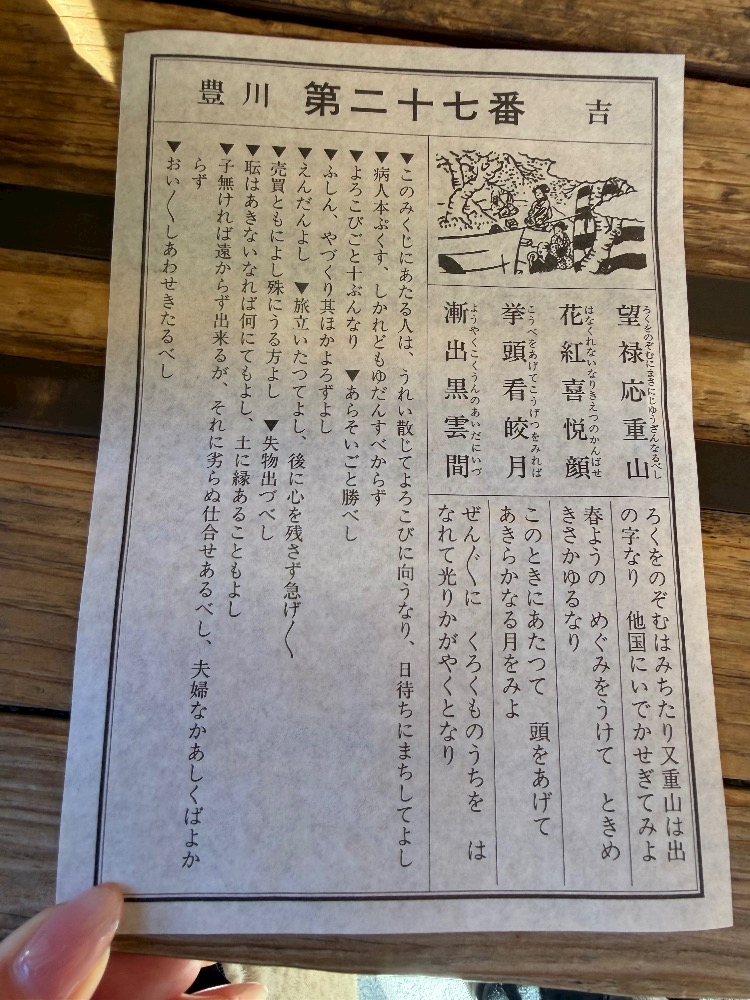 豊川 第二十七番 吉
望禄応重山
ろくをのぞむにまさにじゆうざんなるべし
花紅喜悦顔
はなくれないなりきえつのかんばせ
挙頭看皎月
こうべをあげてこうげつをみれば
漸出黒雲間
ようやくこくうんのあいだにいづ
ろくをのぞむはみちたり又重山は出
の字なり 他国にいでかせぎてみよ
春ようの めぐみをうけて ときめ
きさかゆるなり
このときにあたつて 頭をあげて
あきらかなる月をみよ
ぜん〲に くろくものうちを は
なれて光りかがやくとなり
▼このみくじにあたる人は、うれい散じてよろこびに向うなり、日待ちにまちしてよし
▼病人本ぷくす、しかれどもゆだんすべからず
▼よろこびごと十ぶんなり ▼あらそいごと勝べし
▼ふしん、やづくり其ほかよろずよし
▼えんだんよし ▼旅立いたつてよし、後に心を残さず急げ〱
▼売買ともによし殊にうる方よし ▼失物出づべし
▼耘はあきないなれば何にてもよし、土に縁あることもよし
▼子無ければ遠からず出来るが、それに劣らぬ仕合せあるべし、夫婦なかあしくばよか
らず
▼おい〱しあわせきたるべし